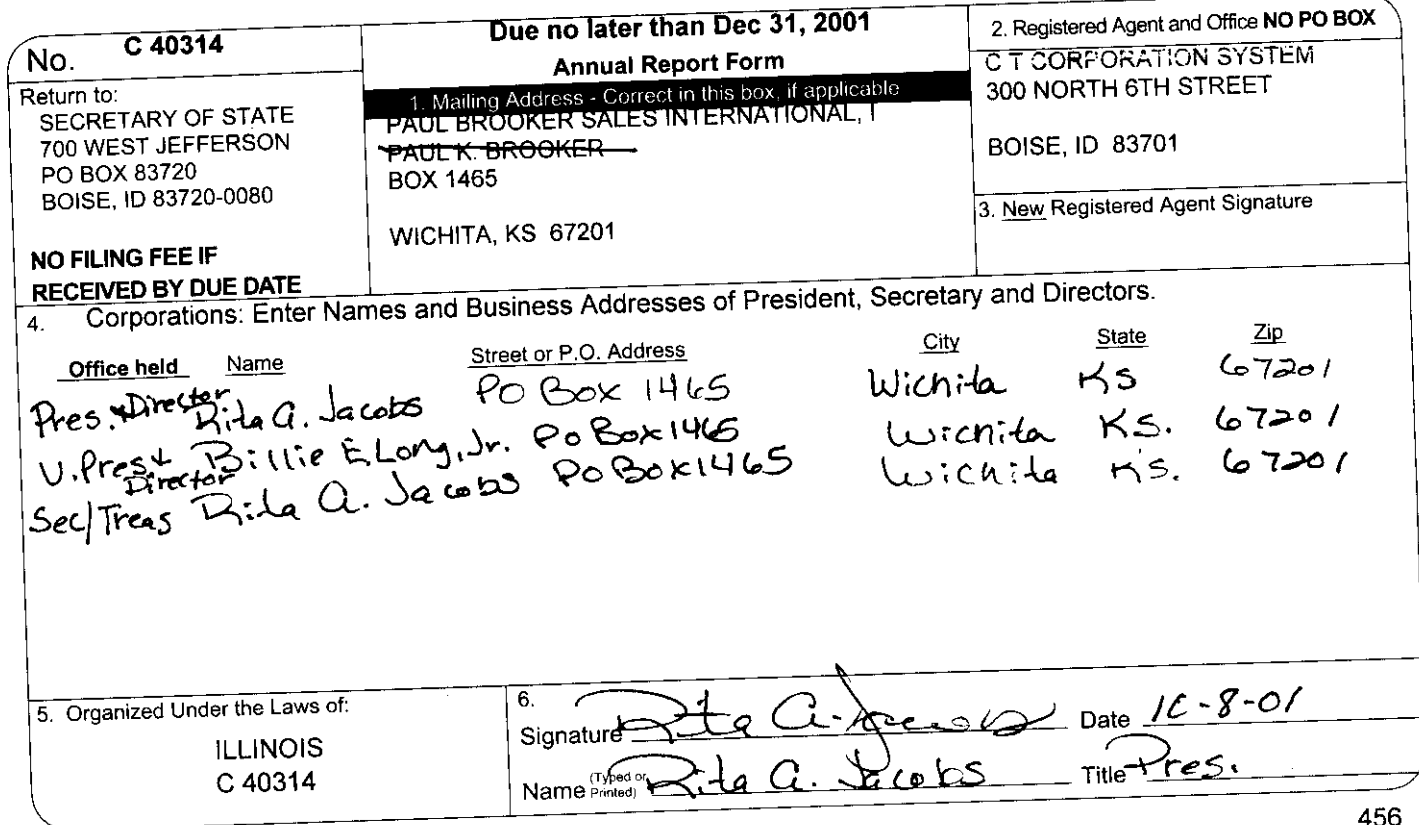 No. C 40314
Return to:
SECRETARY OF STATE
700 WEST JEFFERSON
PO BOX 83720
BOISE, ID 83720-0080
NO FILING FEE IF
RECEIVED BY DUE DATE
Due no later than Dec 31, 2001
Annual Report Form
1. Mailing Address - Correct in this box, if applicable
PAUL BROOKER SALES INTERNATIONAL, I
PAUL K. BROOKER
BOX 1465
WICHITA, KS 67201
2. Registered Agent and Office NO PO BOX
C T CORPORATION SYSTEM
300 NORTH 6TH STREET
BOISE, ID 83701
3. New Registered Agent Signature
4. Corporations: Enter Names and Business Addresses of President, Secretary and Directors.
Office held Name Street or P.O. Address City State Zip
Pres. & Director Rita A. Jacobs PO Box 1465 Wichita KS 67201
V. Pres & Director Billie E Long, Jr. PO Box 1465 Wichita KS. 67201
Sec/Treas Rita A. Jacobs PO Box 1465 Wichita KS. 67201
5. Organized Under the Laws of:
ILLINOIS
C 40314
6.
Signature Rita A. Jacobs Date 10-8-01
Name (Typed or Printed) Rita A. Jacobs Title Pres.
456